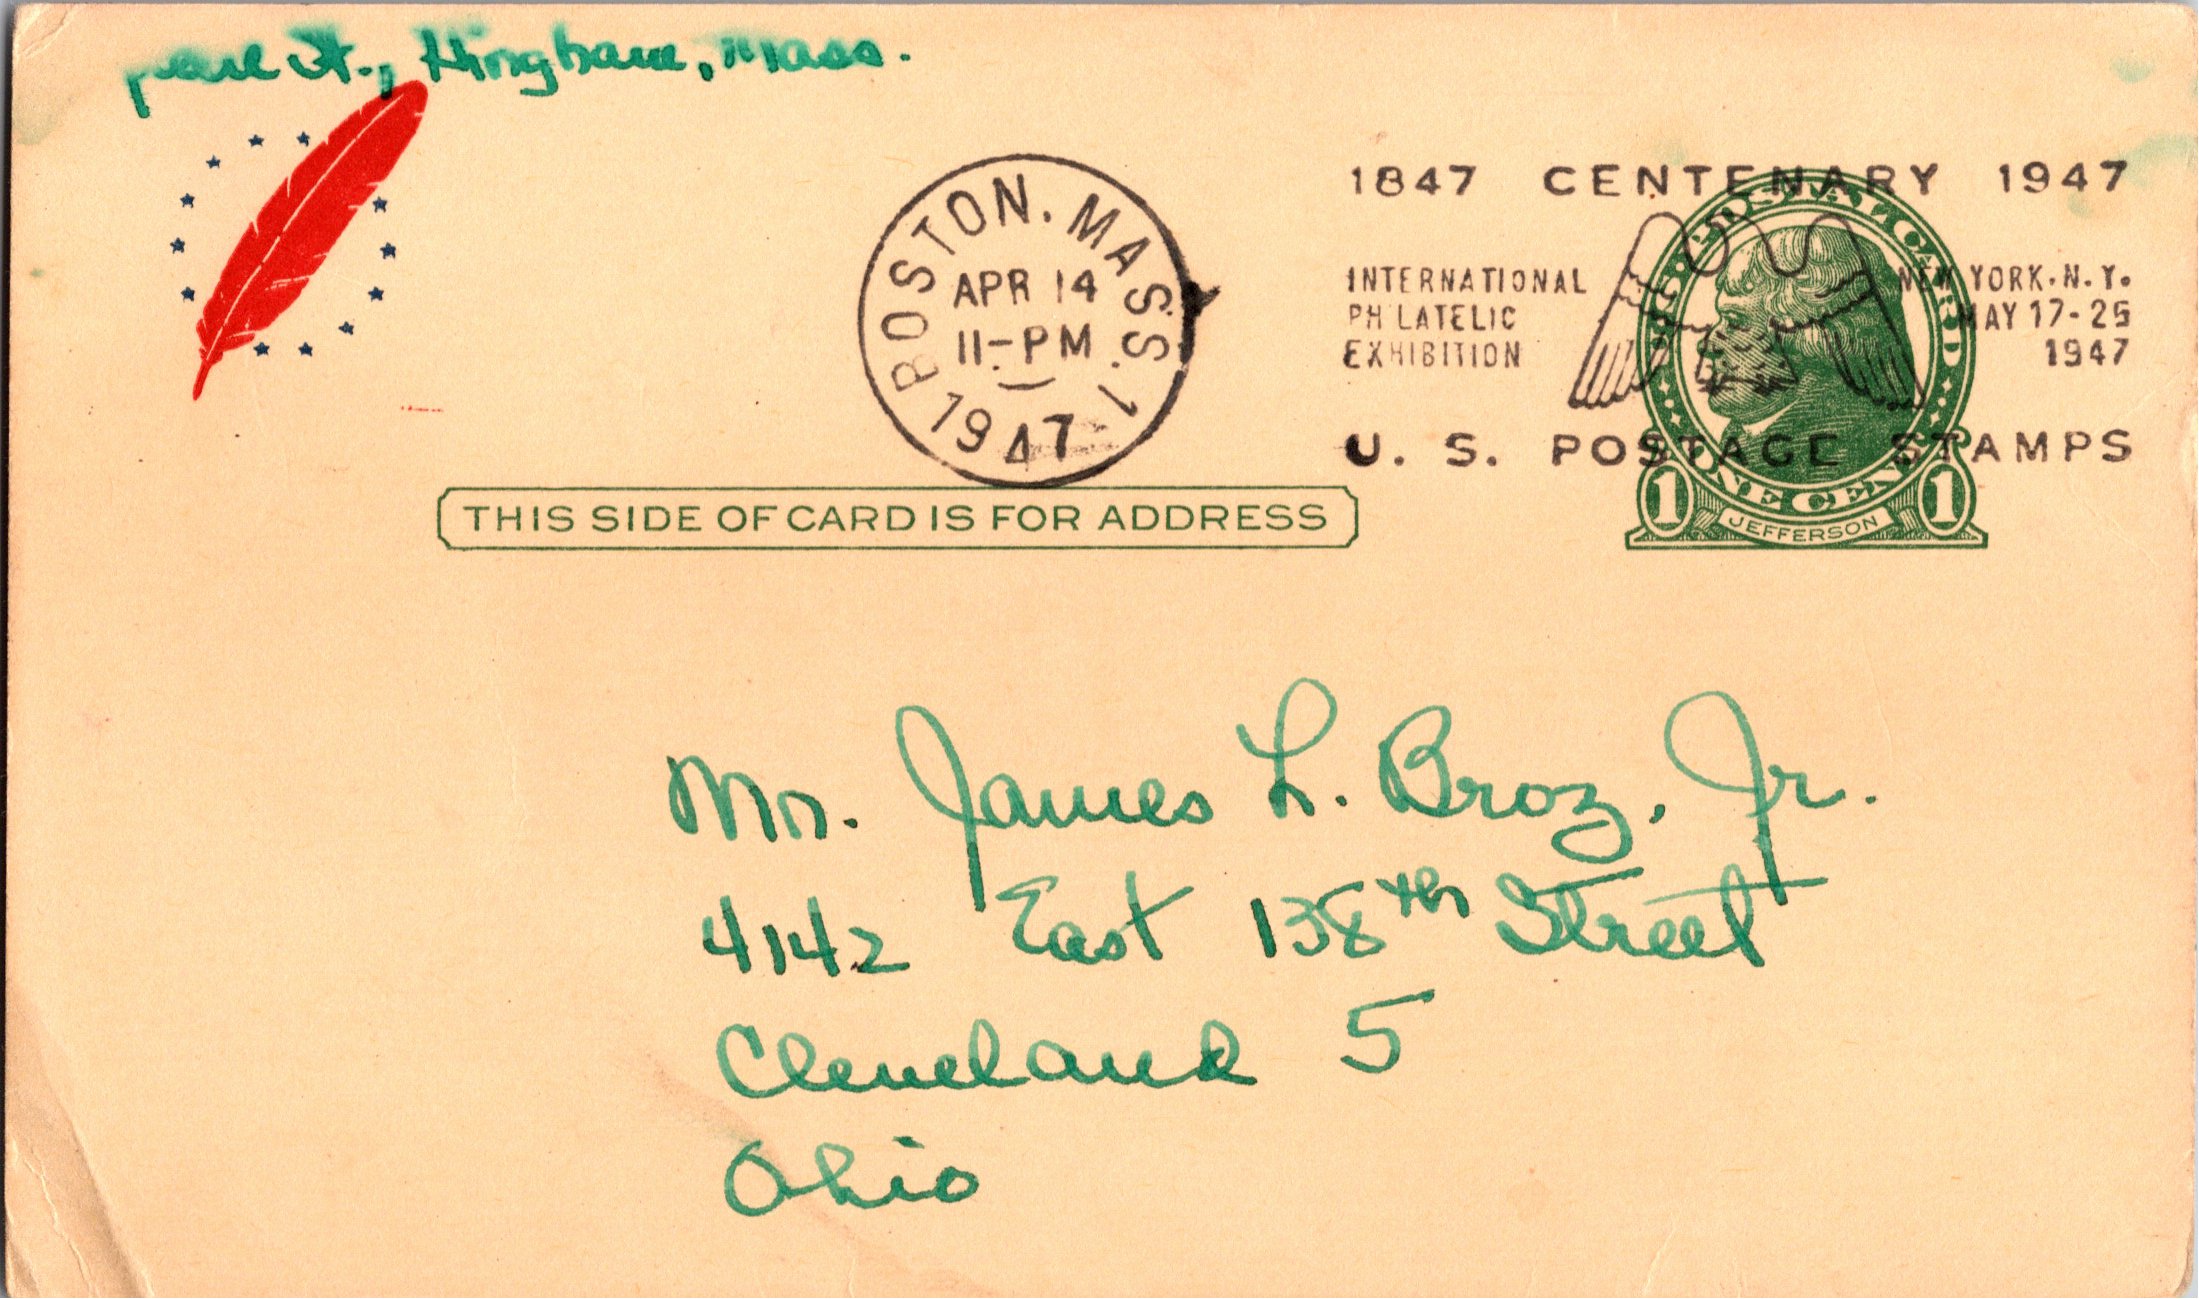 St., Hingham, Mass.
BOSTON. MASS. 1
APR 14
11-PM
1947
1847 CENTENARY 1947
INTERNATIONAL
PHILATELIC
EXHIBITION
NEW YORK. N. Y.
MAY 17-25
1947
U. S. POSTAGE STAMPS
U·S·POSTAL CARD
ONE CENT
1 1
JEFFERSON
THIS SIDE OF CARD IS FOR ADDRESS
Mr. James L. Broz, Jr.
4142 East 138th Street
Cleveland 5
Ohio